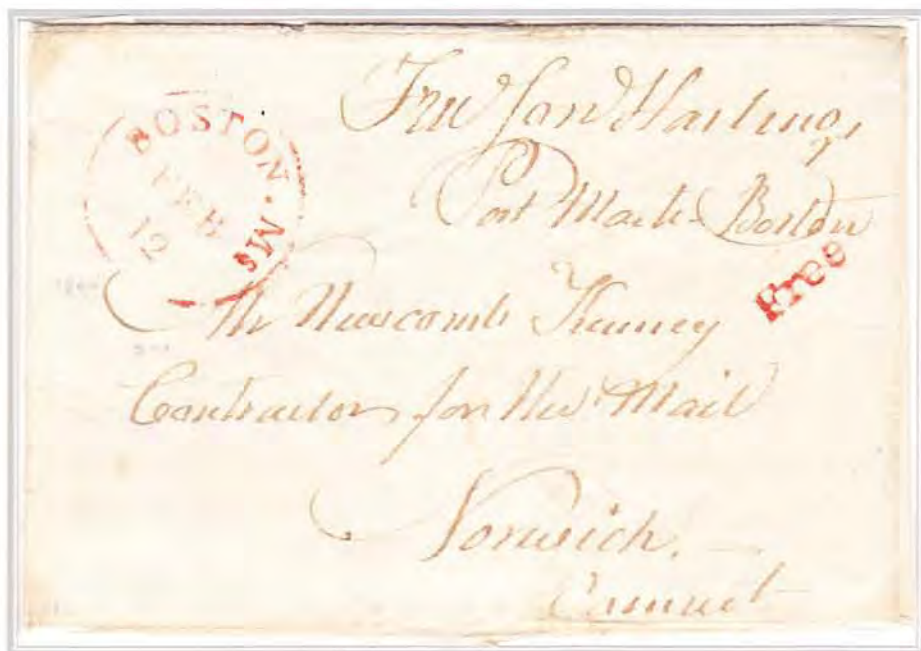 BOSTON • Ms
FEB
12
Free Jona Hastings
Post Mastr Boston
Free
Mr Newcomb Kinney
Contractor for the Mail
Norwich.
Connect